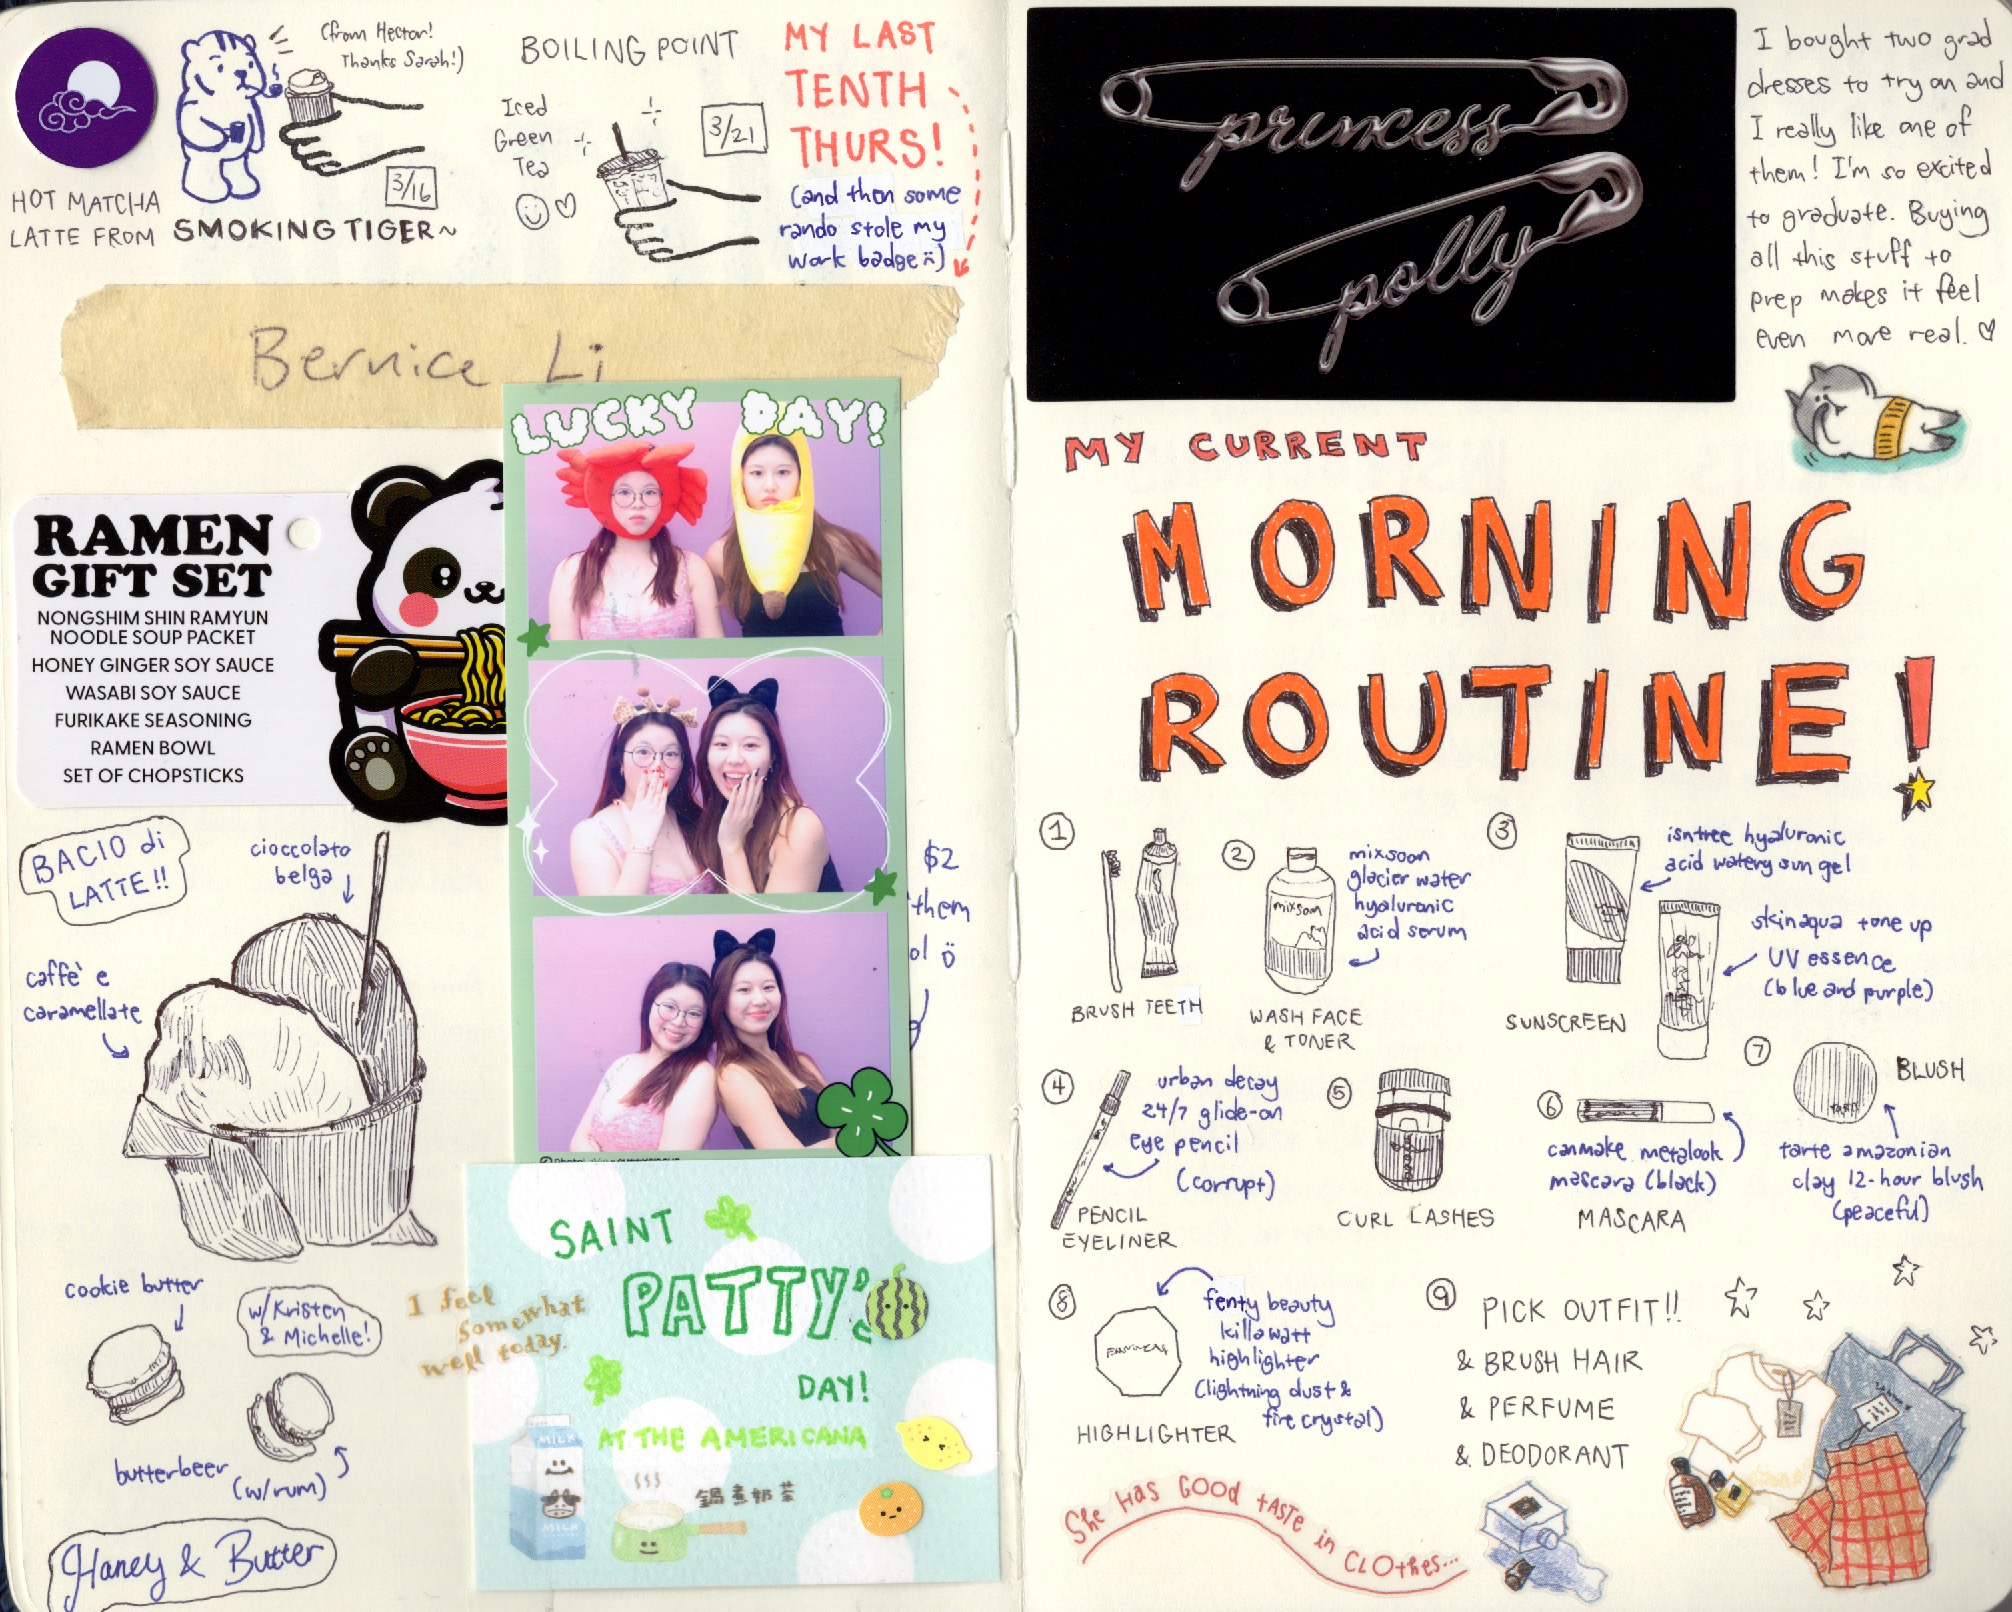 (from Hector!
Thanks Sarah!)
HOT MATCHA
LATTE FROM
SMOKING TIGER~
3/16
BOILING POINT
Iced
Green
Tea
3/21
MY LAST
TENTH
THURS!
(and then some
rando stole my
work badge)
Bernice Li
RAMEN
GIFT SET
NONGSHIM SHIN RAMYUN
NOODLE SOUP PACKET
HONEY GINGER SOY SAUCE
WASABI SOY SAUCE
FURIKAKE SEASONING
RAMEN BOWL
SET OF CHOPSTICKS
LUCKY DAY!
$2
them
ol
BACIO di
LATTE!!
cioccolato
belga
caffè e
caramellate
cookie butter
w/Kristen
& Michelle!
butterbeer
(w/rum)
Honey & Butter
SAINT
PATTY'S
DAY!
AT THE AMERICANA
I feel
somewhat
well today.
MILK
MILK
鍋煮奶茶
princess
polly
I bought two grad
dresses to try on and
I really like one of
them! I'm so excited
to graduate. Buying
all this stuff to
prep makes it feel
even more real.
MY CURRENT
MORNING
ROUTINE!
1
BRUSH TEETH
2
mixsoon
glacier water
hyaluronic
acid serum
mixsoon
WASH FACE
& TONER
3
isntree hyaluronic
acid watery sun gel
skin aqua tone up
UV essence
(blue and purple)
SUNSCREEN
4
urban decay
24/7 glide-on
eye pencil
(corrupt)
PENCIL
EYELINER
5
CURL LASHES
6
canmake metalook
mascara (black)
MASCARA
7
BLUSH
tarte
tarte amazonian
clay 12-hour blush
(peaceful)
8
fenty beauty
killawatt
highlighter
(lightning dust &
fire crystal)
HIGHLIGHTER
9
PICK OUTFIT!!
& BRUSH HAIR
& PERFUME
& DEODORANT
She HAS GOOD tASTe in CLOthes...